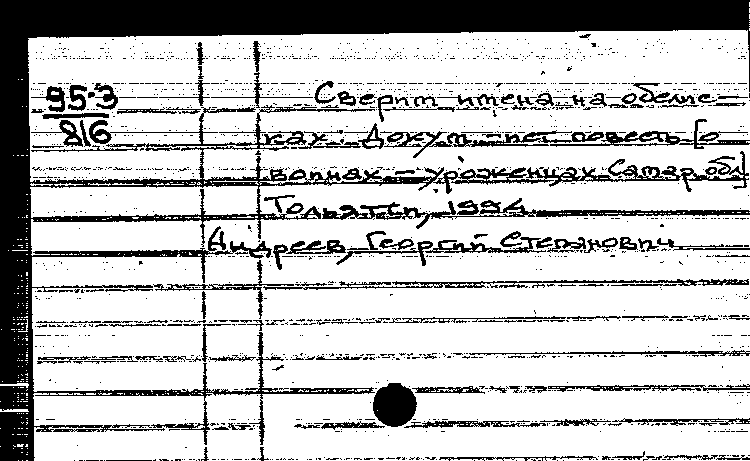 95-3
816
Сверит имена на обелис-
ках: Докум.-пет повесть [о
воинах - уроженцах Самар. обл]
Тольятти, 1994
Андреев, Георгий Степанович